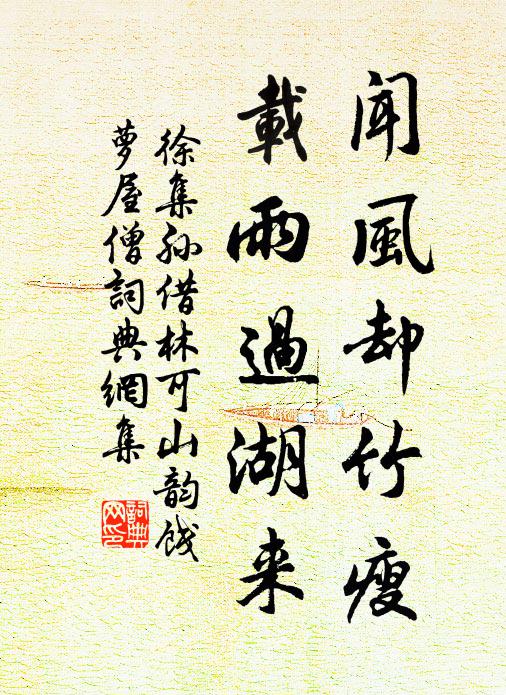 聞風却竹瘦
載雨過湖来
徐集孙借林可山韵饯
萝屋僧詞典網集
詞典网印